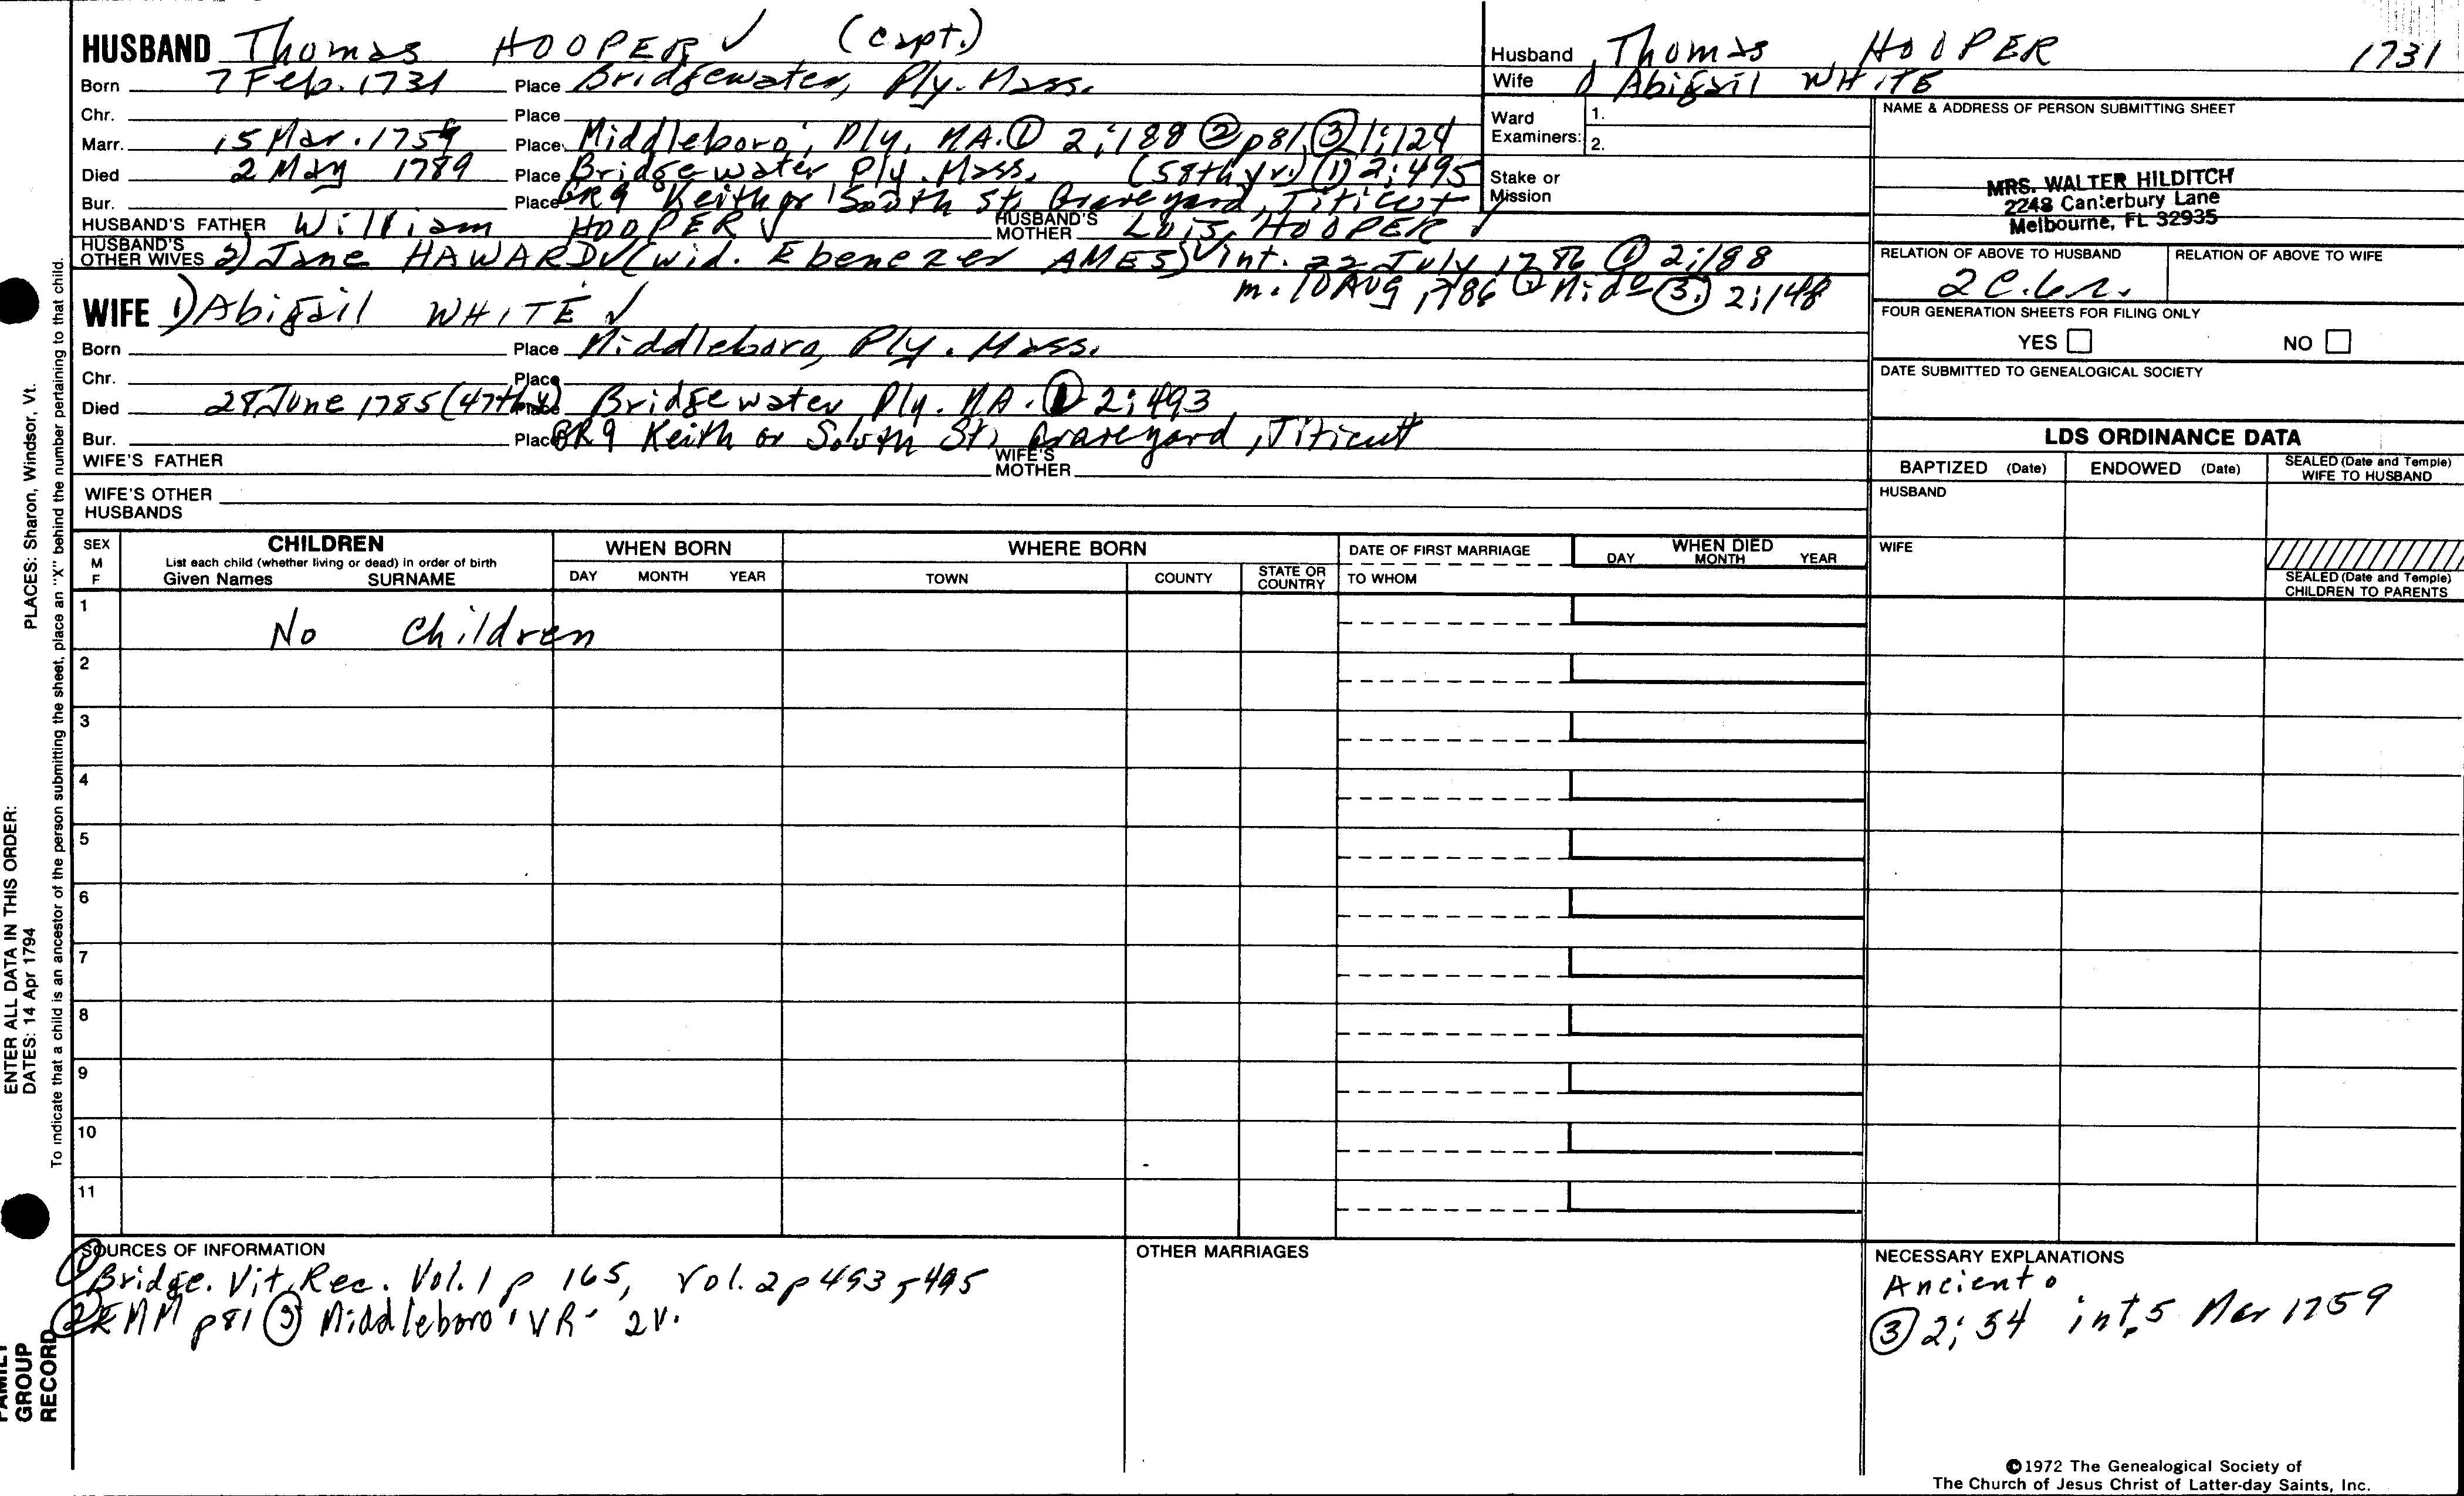 HUSBAND Thomas HOOPER ✓ (capt.)
Born 7 Feb. 1731 Place Bridgewater, Ply. Mass.
Chr. Place
Marr. 15 Mar. 1759 Place Middleboro, Ply, MA. ① 2:188 ② p81, ③ 1:124
Died 2 May 1789 Place Bridgewater Ply. Mass. (58th yr.) (1) 2:495
Bur. Place GR9 Keith or South St. Graveyard, Titicut
HUSBAND'S FATHER William HOOPER ✓ HUSBAND'S MOTHER Lois HOOPER ✓
HUSBAND'S OTHER WIVES 2) Jane HAWARD ✓ (wid. Ebenezer AMES) ✓ int. 22 July 1786 ① 2:188
m. 10 AUG 1786 Mido ③ 2:148
WIFE 1) Abigail WHITE ✓
Born Place Middleboro, Ply. Mass.
Chr. Place
Died 28 June 1785 (47th y) Place Bridgewater, Ply. MA. ① 2:493
Bur. Place GR9 Keith or South St. Graveyard, Titicutt
WIFE'S FATHER WIFE'S MOTHER
WIFE'S OTHER
HUSBANDS
Husband Thomas HOOPER 1731
Wife Abigail WHITE
Ward 1.
Examiners: 2.
Stake or
Mission
NAME & ADDRESS OF PERSON SUBMITTING SHEET
MRS. WALTER HILDITCH
2248 Canterbury Lane
Melbourne, FL 32935
RELATION OF ABOVE TO HUSBAND RELATION OF ABOVE TO WIFE
2 C.6 r.
FOUR GENERATION SHEETS FOR FILING ONLY
YES NO
DATE SUBMITTED TO GENEALOGICAL SOCIETY
LDS ORDINANCE DATA
BAPTIZED (Date) ENDOWED (Date) SEALED (Date and Temple) WIFE TO HUSBAND
HUSBAND
WIFE
SEALED (Date and Temple)
CHILDREN TO PARENTS
SEX M F
CHILDREN
List each child (whether living or dead) in order of birth
Given Names SURNAME
WHEN BORN
DAY MONTH YEAR
WHERE BORN
TOWN COUNTY STATE OR COUNTRY
DATE OF FIRST MARRIAGE
TO WHOM
WHEN DIED
DAY MONTH YEAR
1 No Children
2
3
4
5
6
7
8
9
10
11
SOURCES OF INFORMATION
① Bridge. Vit. Rec. Vol. 1 p 165, Vol. 2 p 493, 495
② EMM p81 ③ Middleboro VR- 2V.
OTHER MARRIAGES
NECESSARY EXPLANATIONS
Ancient
③ 2:54 int. 5 Mar 1759
©1972 The Genealogical Society of
The Church of Jesus Christ of Latter-day Saints, Inc.
PLACES: Sharon, Windsor, Vt.
ENTER ALL DATA IN THIS ORDER:
DATES: 14 Apr 1794
To indicate that a child is an ancestor of the person submitting the sheet, place an "X" behind the number pertaining to that child.
FAMILY
GROUP
RECORD